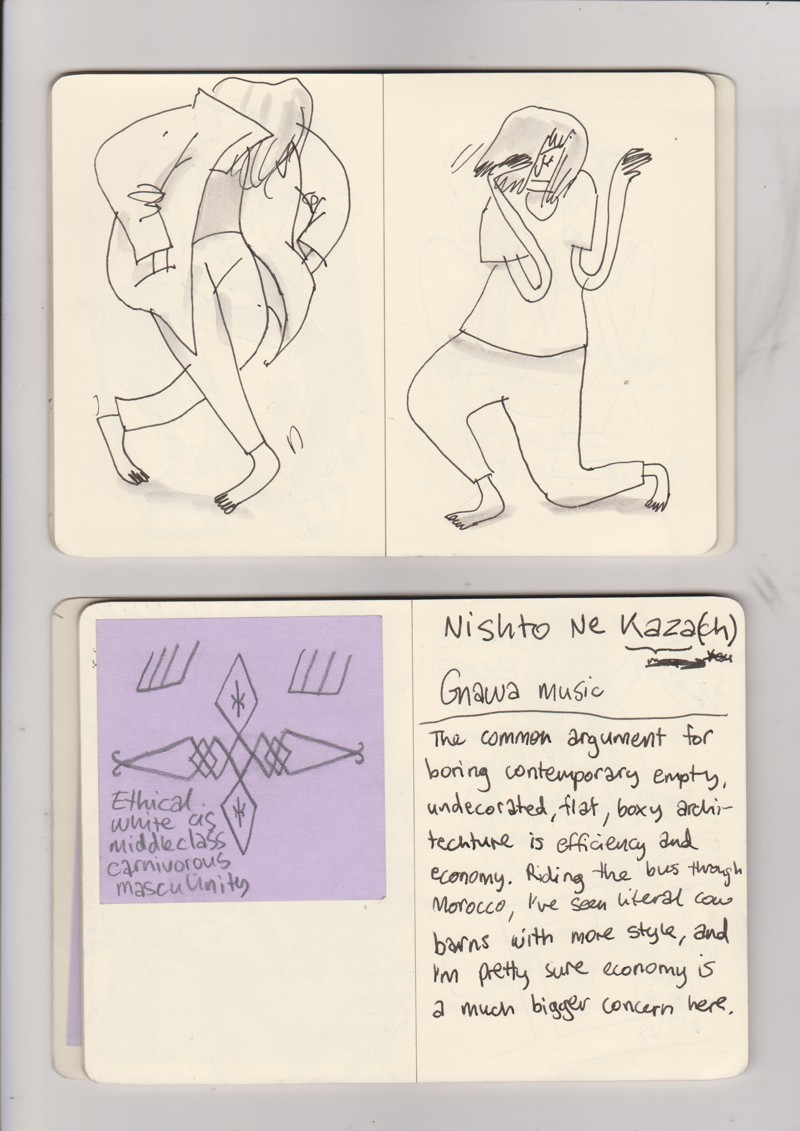 Ethical
white as
middleclass
carnivorous
masculinity
Nishto Ne Kaza(ch)
You
Gnawa music
The common argument for
boring contemporary empty,
undecorated, flat, boxy archi-
techture is efficiency and
economy. Riding the bus through
Morocco, I've seen literal cow
barns with more style, and
I'm pretty sure economy is
a much bigger concern here.